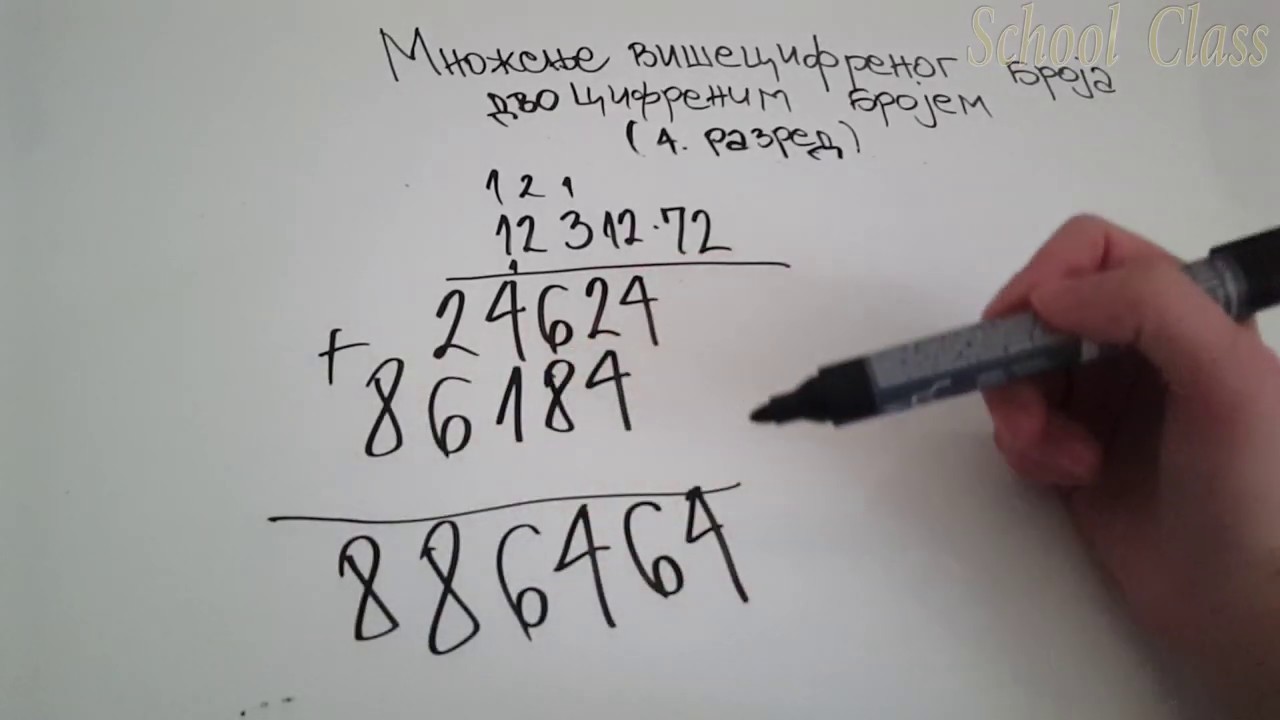 School Class
Множење вишецифреног броја
двоцифреним бројем
(4. разред)
1 2 1
12 312·72
1
24624
+
86184
886464